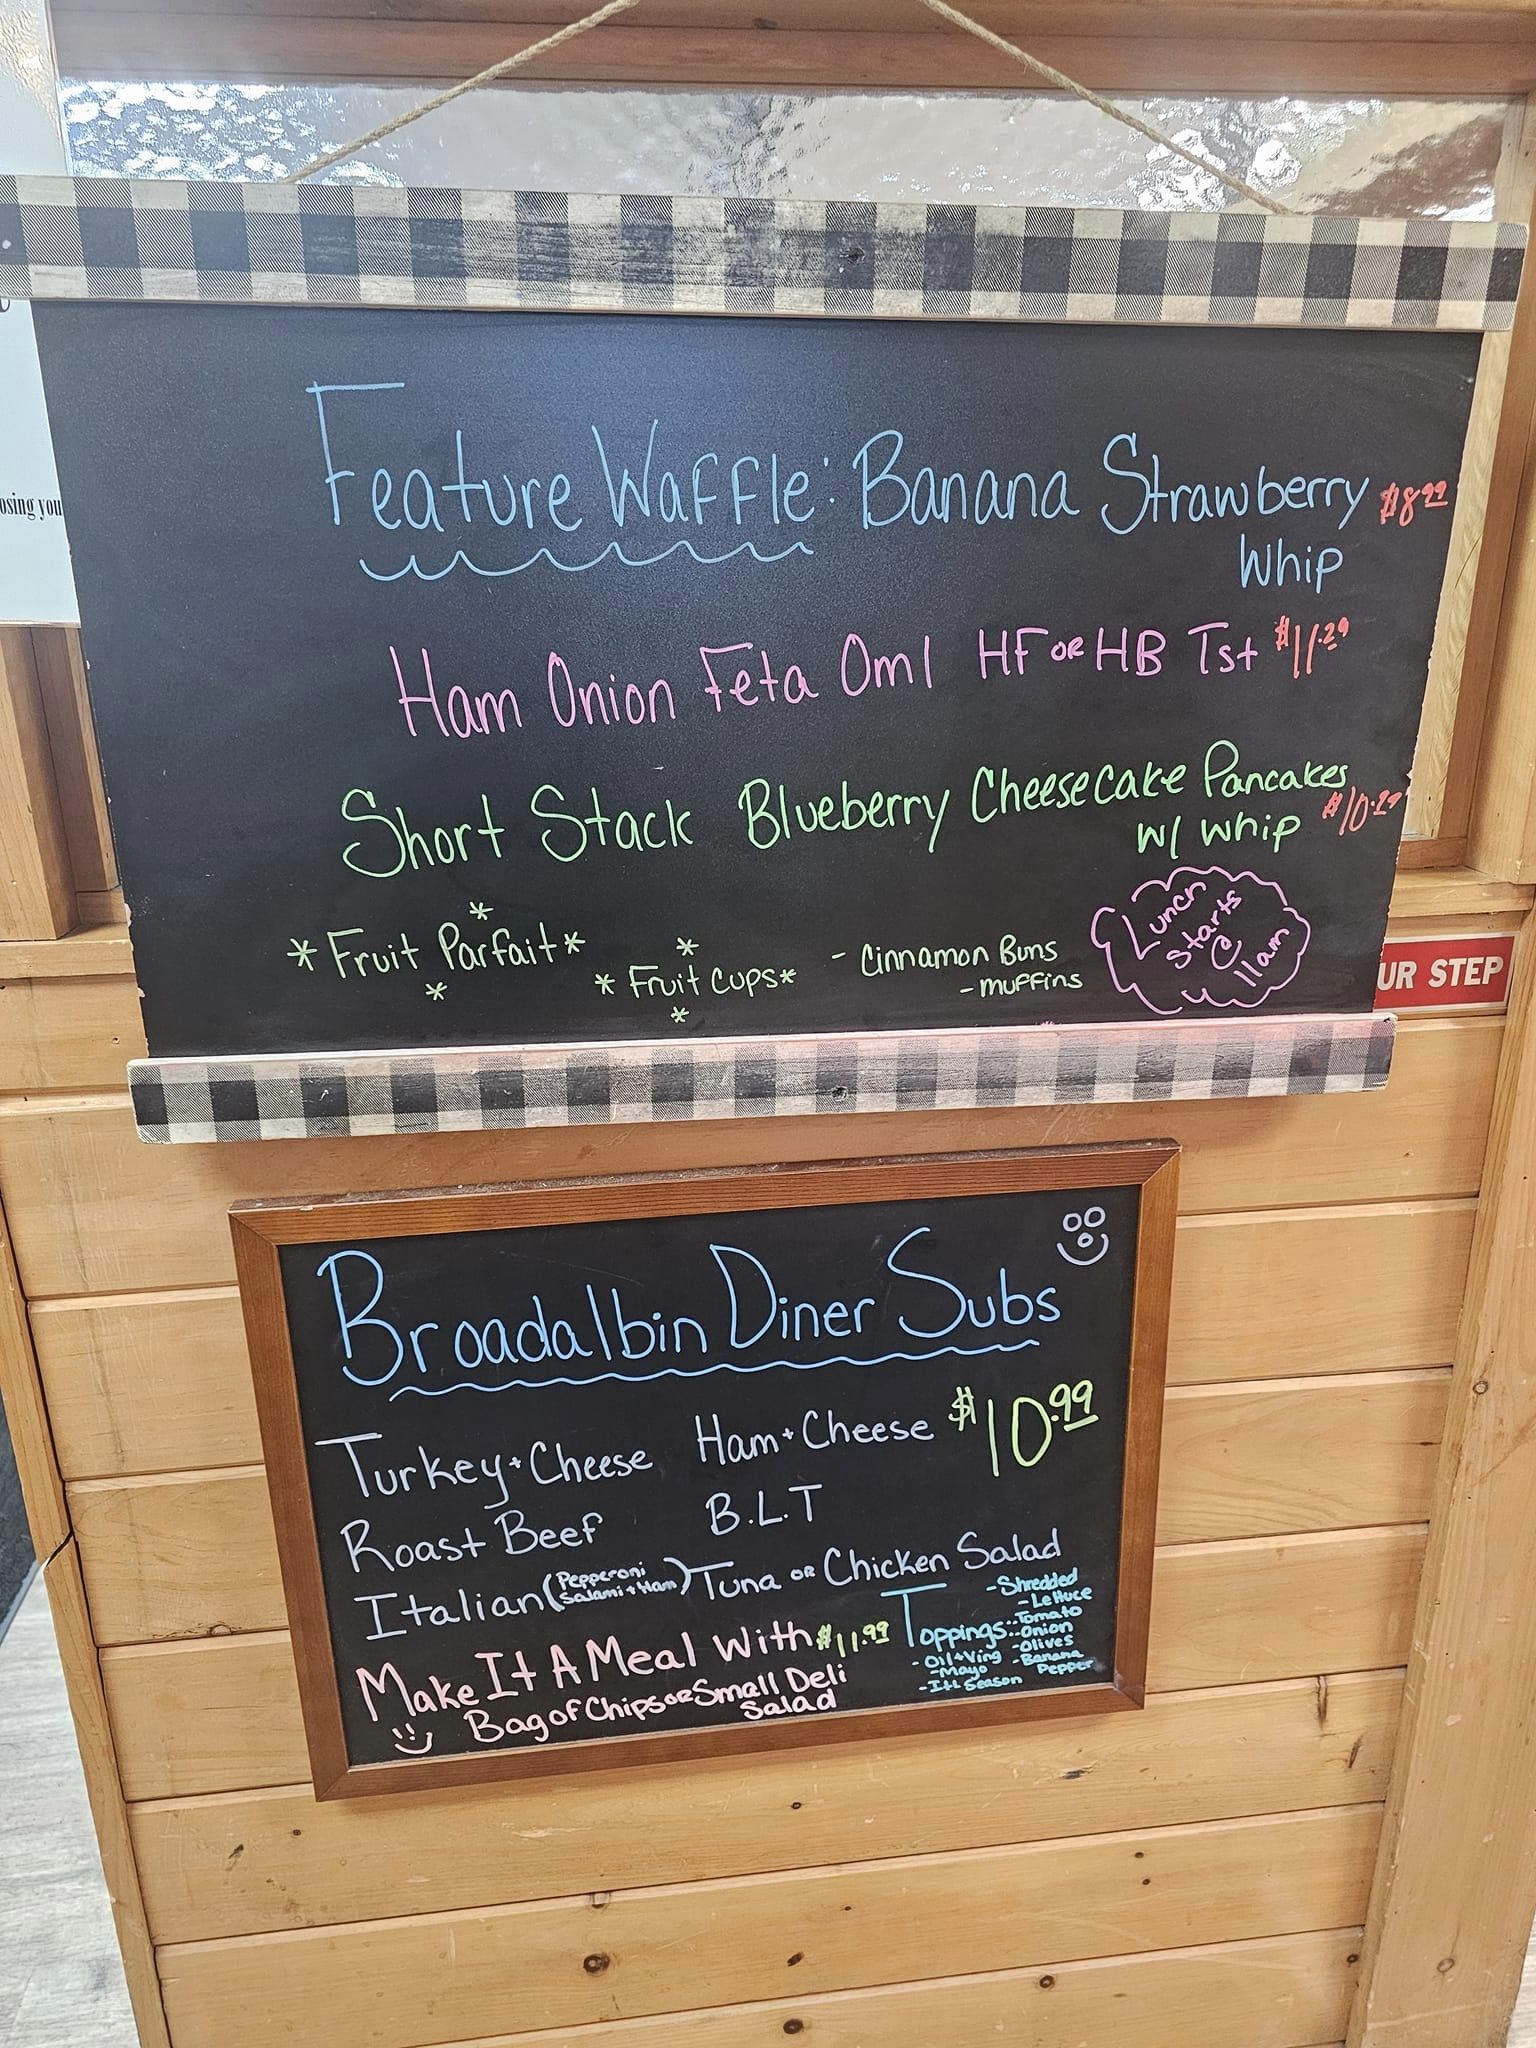 osing you
Feature Waffle: Banana Strawberry $8.99
Whip
Ham Onion Feta Oml HF OR HB Tst $11.29
Short Stack Blueberry Cheesecake Pancakes
w/ whip $10.29
*Fruit Parfait*
*Fruit Cups*
- Cinnamon Buns
- muffins
Lunch
Starts
@
11am
UR STEP
Broadalbin Diner Subs
Turkey + Cheese Ham + Cheese $10.99
Roast Beef B.L.T
Italian (Pepperoni
Salami + Ham) Tuna OR Chicken Salad
Make It A Meal With $11.99
Bag of Chips or Small Deli
Salad
Toppings:
- Shredded
- Lettuce
- Tomato
- Onion
- Olives
- Banana
Pepper
- Oil + Ving
- Mayo
- Itl Season